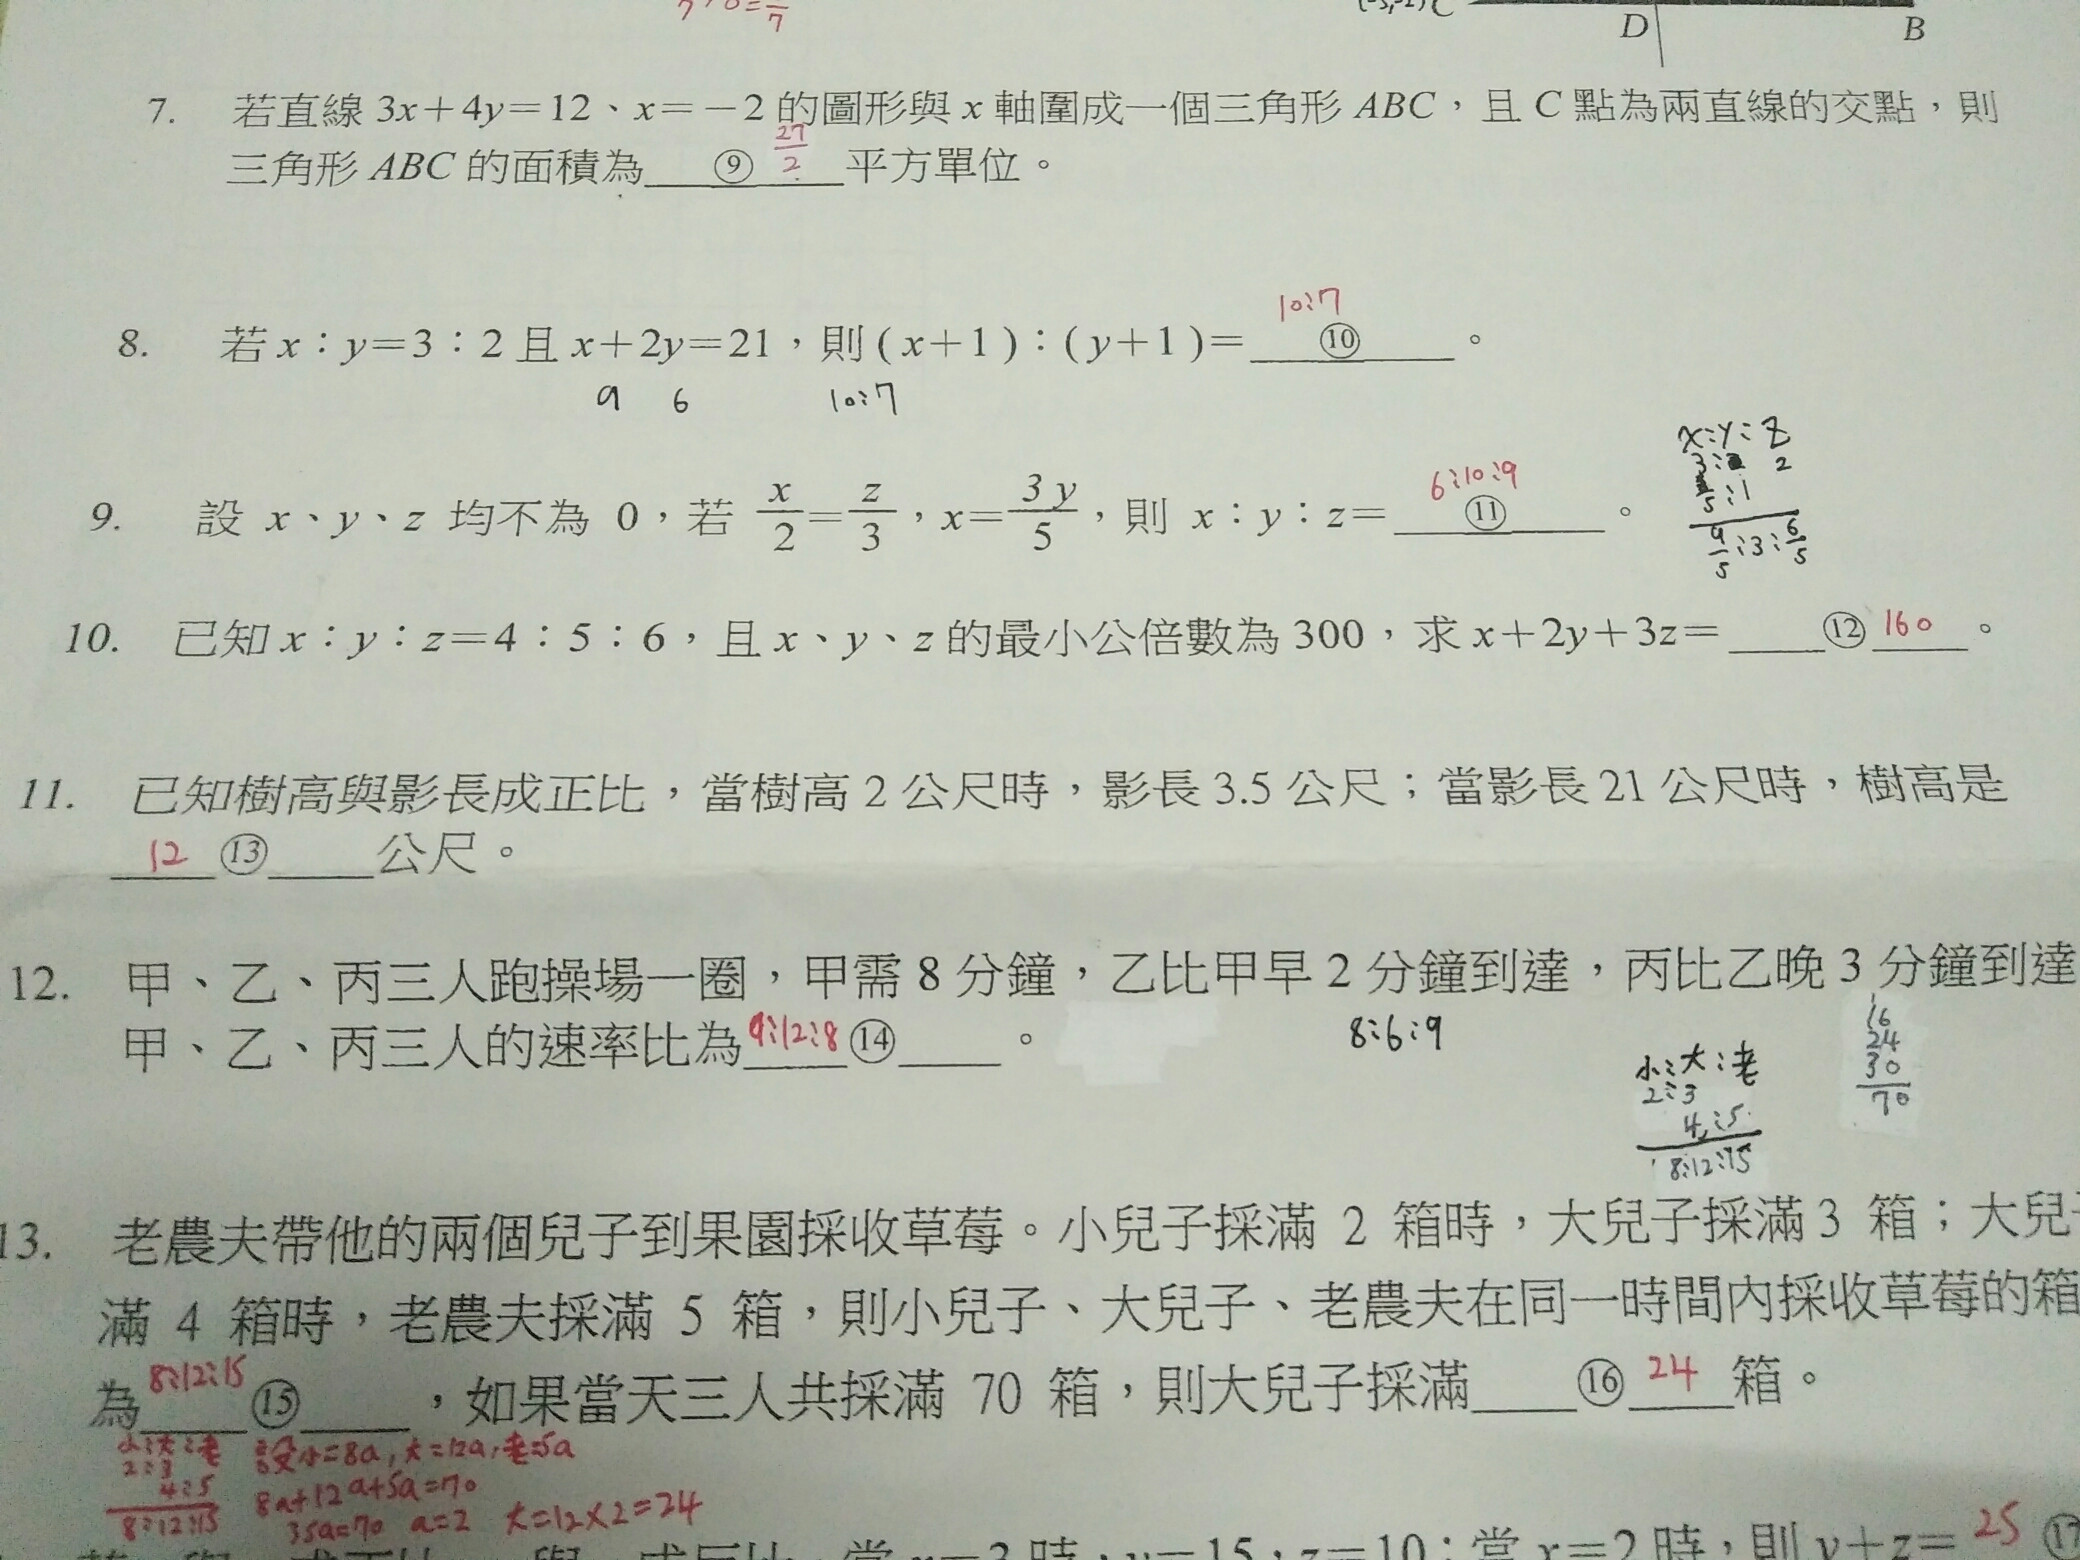 D B
7. 若直線 3x+4y=12、x=-2 的圖形與 x 軸圍成一個三角形 ABC，且 C 點為兩直線的交點，則
三角形 ABC 的面積為 ⑨ 27/2 平方單位。
10:7
8. 若 x：y=3：2 且 x+2y=21，則 ( x+1 )：( y+1 )= ⑩ 。
9 6 10:7
x:y:z
6:10:9
9. 設 x、y、z 均不為 0，若 x/2=z/3，x=3y/5，則 x：y：z= ⑪ 。
9/5:3:6/5
10. 已知 x：y：z=4：5：6，且 x、y、z 的最小公倍數為 300，求 x+2y+3z= ⑫ 160 。
11. 已知樹高與影長成正比，當樹高 2 公尺時，影長 3.5 公尺；當影長 21 公尺時，樹高是
12 ⑬ 公尺。
12. 甲、乙、丙三人跑操場一圈，甲需 8 分鐘，乙比甲早 2 分鐘到達，丙比乙晚 3 分鐘到達
甲、乙、丙三人的速率比為 9:12:8 ⑭ 。
8:6:9
16
24
30
70
小:大:老
2:3
4:5
8:12:15
13. 老農夫帶他的兩個兒子到果園採收草莓。小兒子採滿 2 箱時，大兒子採滿 3 箱；大兒
滿 4 箱時，老農夫採滿 5 箱，則小兒子、大兒子、老農夫在同一時間內採收草莓的箱
為 8:12:15 ⑮ ，如果當天三人共採滿 70 箱，則大兒子採滿 ⑯ 24 箱。
小:大:老 設小=8a,大=12a,老=5a
2:3
4:5 8a+12a+5a=70
8:12:15 35a=70 a=2 大=12×2=24
y=15，z=10；當 x=2 時，則 y+z= 25 ⑰